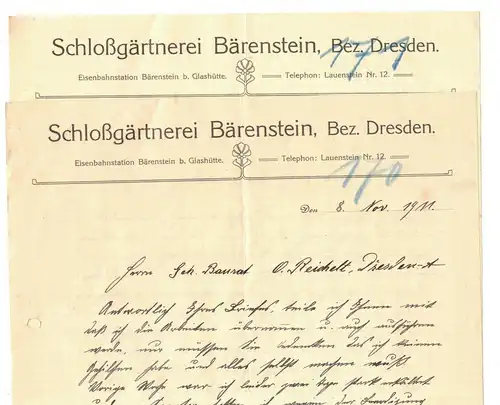 Schloßgärtnerei Bärenstein, Bez. Dresden.
171
Eisenbahnstation Bärenstein b. Glashütte.
Telephon: Lauenstein Nr. 12.
Schloßgärtnerei Bärenstein, Bez. Dresden.
Eisenbahnstation Bärenstein b. Glashütte.
Telephon: Lauenstein Nr. 12.
170
Den 8. Nov. 1911.
Herrn Geh. Baurat O. Reichelt, Dresden-A
Antwortlich Ihres Briefes, teile ich Ihnen mit
daß ich die Arbeiten übernommen u. auch ausführen
werde, nur müssen Sie bedenken das ich keinen
Gehilfen habe und alles selbst machen muß.
Vorige Woche war ich leider zwei tage stark erkältet